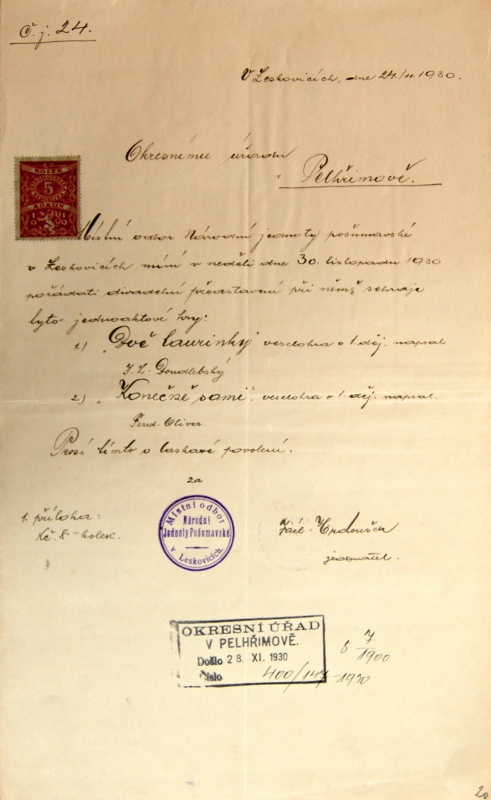 Č. j. 24.
V Leskovicích, dne 24/11 1930.
Okresnímu úřadu
v Pelhřimově.
KOLEK
5
KORUN
Místní odbor Národní jednoty pošumavské
v Leskovicích míní v neděli dne 30. listopadu 1930
pořádati divadelní představení při němž sehraje
tyto jednoaktové hry:
1.) "Dvě laurinky" veselohra o 1 děj. napsal
J. L. Doudlebský
2.) "Konečně sami". veselohra o 1. děj. napsal
Ferd. Oliva.
Prosí tímto o laskavé povolení.
za
1. příloha:
Kč 8- kolek.
Místní odbor
Národní
Jednoty Pošumavské
v Leskovicích.
jednatel.
OKRESNÍ ÚŘAD
V PELHŘIMOVĚ.
Došlo 28. XI. 1930
Číslo
6 7/1900
20